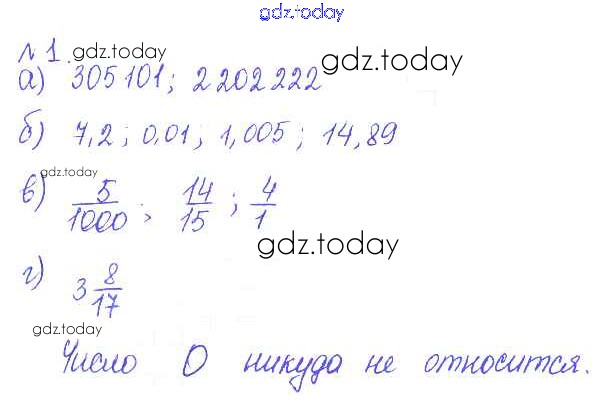 gdz.today
№ 1. gdz.today
а) 305 101; 2 202 222
gdz.today
б) 7,2; 0,01; 1,005; 14,89
gdz.today
в) 5/1000; 14/15; 4/1
gdz.today
г) 3 8/17
gdz.today
Число 0 никуда не относится.